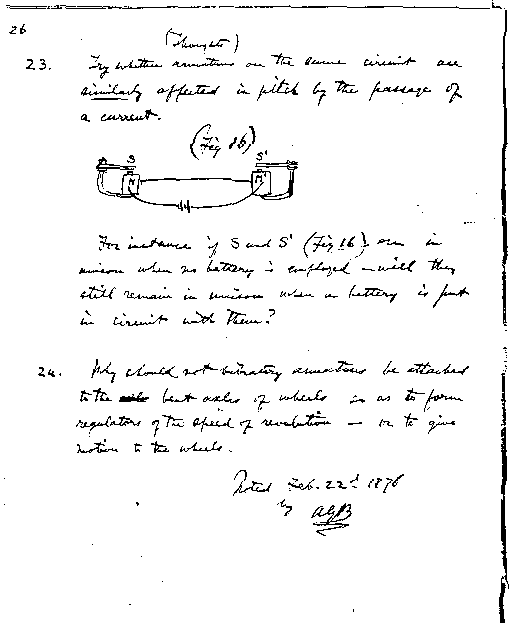 26
(Thoughts)
23. Try whether armatures on the same circuit are
similarly affected in pitch by the passage of
a current.
(Fig 16)
S S'
M M'
For instance if S and S' (Fig 16) are in
unison when no battery is employed — will they
still remain in unison when a battery is put
in circuit with them?
24. Why should not vibratory armatures be attached
to the bent axles of wheels so as to form
regulators of the speed of revolution — or to give
motion to the wheels.
Noted Feb. 22d 1876
by AGB